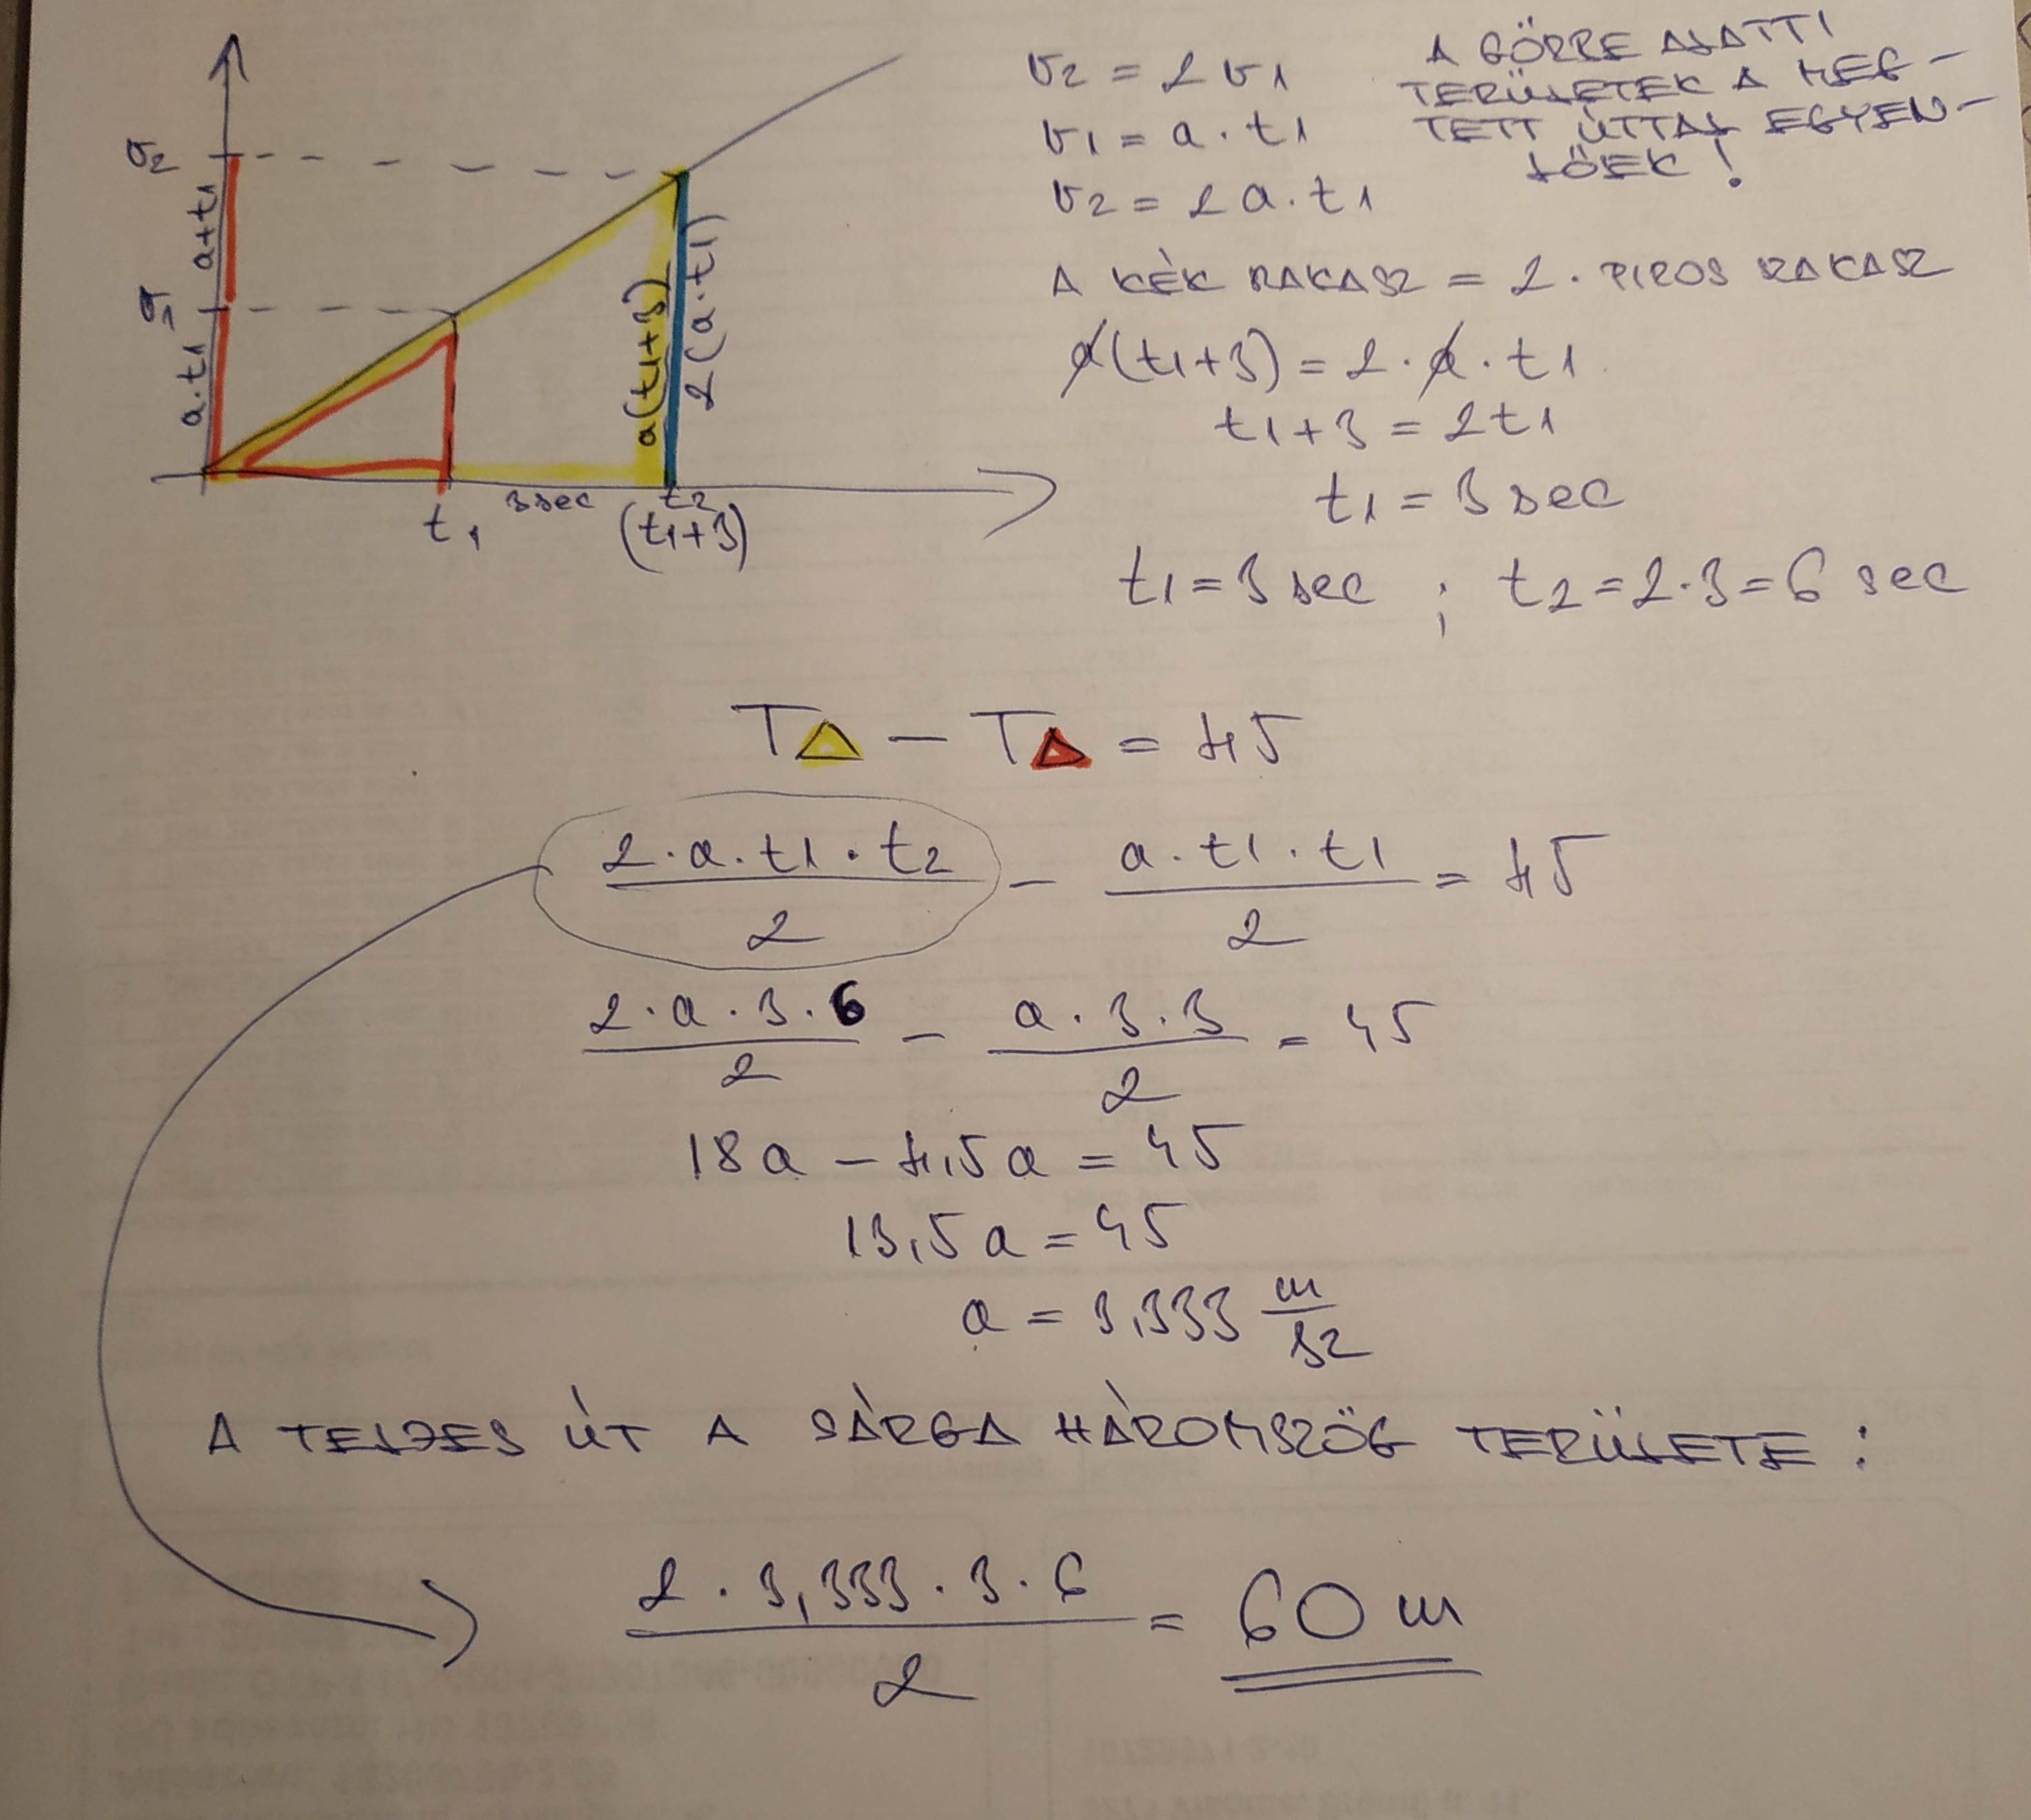 v2
a+t1
v1
a.t1
a(t1+3)
2(a.t1)
3 sec
t2
t1
(t1+3)
v2 = 2 v1
v1 = a . t1
v2 = 2 a . t1
A GÖRBE ALATTI
TERÜLETEK A MEG-
TETT ÚTTAL EGYEN-
LŐEK !
A KÉK SZAKASZ = 2 . PIROS SZAKASZ
a(t1+3) = 2 . a . t1
t1+3 = 2t1
t1 = 3 sec
t1 = 3 sec ; t2 = 2.3 = 6 sec
T△ - T△ = 45
2.a.t1.t2 / 2 - a.t1.t1 / 2 = 45
2.a.3.6 / 2 - a.3.3 / 2 = 45
18a - 4,5a = 45
13,5a = 45
a = 3,333 m/s2
A TELJES ÚT A SÁRGA HÁROMSZÖG TERÜLETE :
2 . 3,333 . 3 . 6 / 2 = 60 m